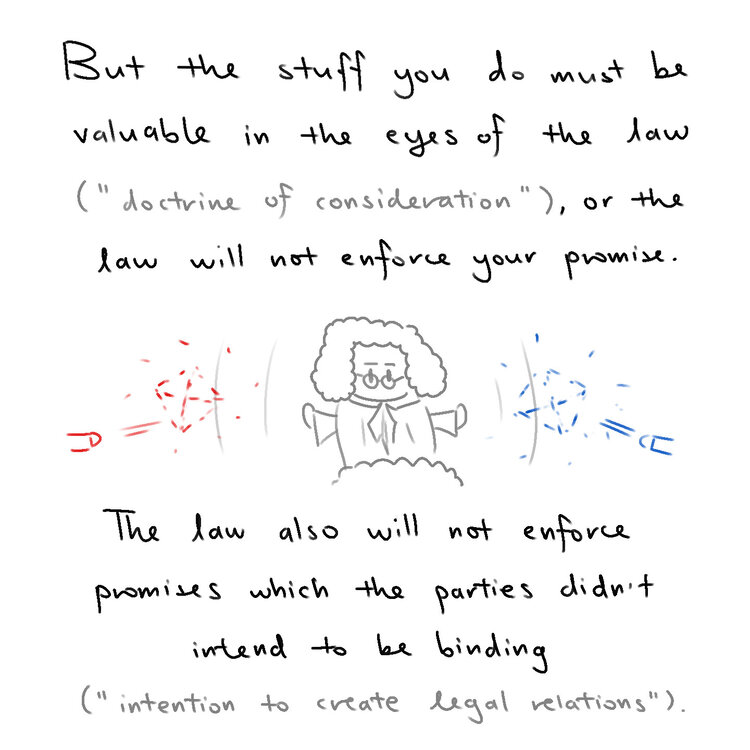 But the stuff you do must be
valuable in the eyes of the law
("doctrine of consideration"), or the
law will not enforce your promise.
The law also will not enforce
promises which the parties didn't
intend to be binding
("intention to create legal relations").